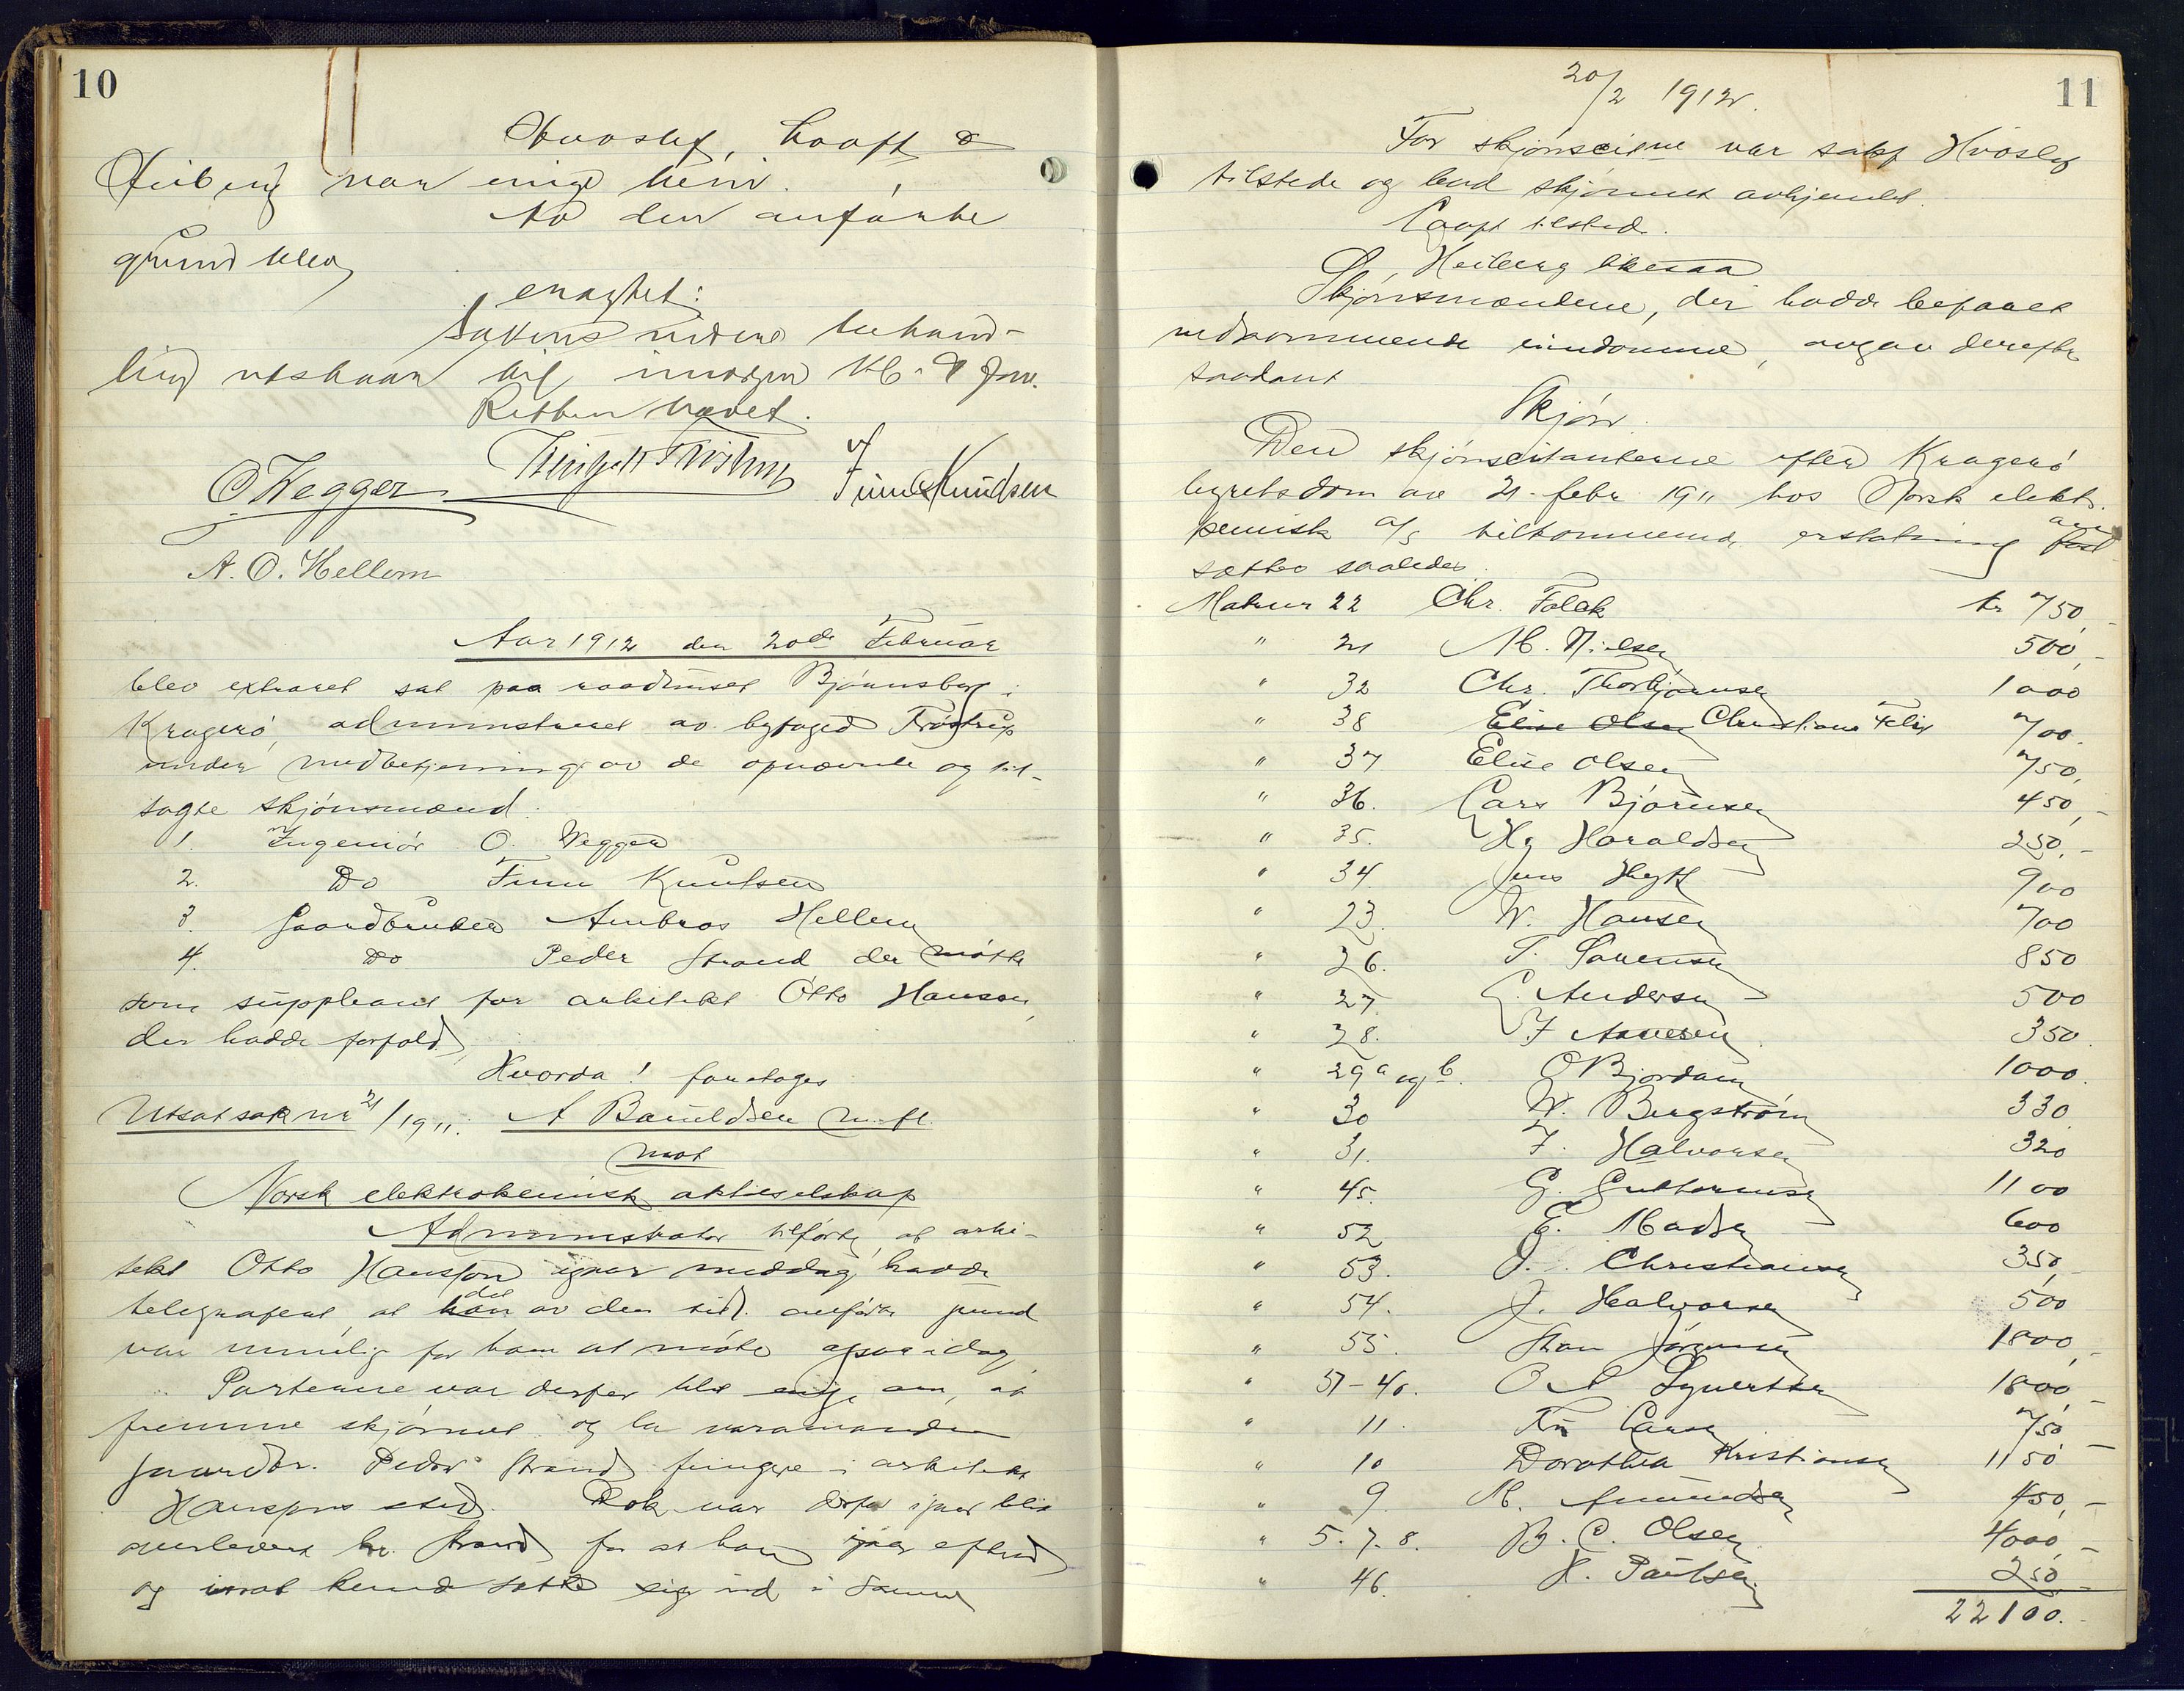 10
Hvoslef, Looft &
Heiberg var enige heri.
Av den anførte
grund blev
eragtet:
Sakens videre behand-
ling utstaar til imorgen Kl. 9 Form.
Retten hævet.
O Wegger Finn Knudsen
A. O. Hellem
Aar 1912 den 20de Februar
blev extraret sat paa raadhuset Bjørnsborg i
Kragerø, administreret av byfoged Trøstrup
under medbetjening av de opnævnte og til-
sagte skjønsmænd:
1. Ingeniør O. Wegger
2. Do Finn Knutsen
3. Gaardbruker Ambros Hellem
4. Do Peder Strand der møtte
som suppleant for arkitekt Otto Hansson,
der hadde forfald.
Hvorda! foretages
Utsat sak nr 21/1911. A Bauldsen m. fl.
mot
Norsk elektrokemisk aktieselskap
Administrator tilførte, at arki-
tekt Otto Hansson igaar middag havde
telegrafert, at det av den anførte grund
var umulig for ham at møte idag.
Parterne var derfor blit enige om, at
fremme skjønnet og la varamanden
gaardbr. Peder Strand fungere i arkitekt
Hanssons sted. Dok var derfor igaar blit
overlevert hr. Strand for at han igaar efterm
og inat kunde sætte sig ind i samme
11
20/2 1912.
For skjønsciterne var sakf Hvoslef
tilstede og bad skjønnet avhjemlet.
Looft tilstede.
Heiberg likesaa
Skjønsmændene, der hadde befaret
vedkommende eiendomme, avgav derefter
saadant
Skjøn.
Den skjønscitanterne efter Kragerø
byretsdom av 21. febr 1911 hos Norsk elekt.
kemisk a/s tilkommende erstatning an
sættes saaledes.
Matnr 22 Chr. Falck kr 750,-
" 21 M. Nielsen 500,-
" 32 Chr. Thorbjørnsen 1000
" 38 Elise Olsen Christiane Felix 700.
" 37 Elise Olsen 750,
" 36. Lars Bjørnsen 450,-
" 35. Hg Haraldsen 250.-
" 34. Jens Hegtf 900
" 23. W. Hansen 700
" 26. T. Sørensen 850
" 27. G. Andersen 500
" 28. F Aavesen 350.
" 29 a og b. O Bjordam 1000.
" 30 W. Bergstrøm 330.
" 31. F. Halvorsen 320
" 45. G. Guttormsen 1100
" 52 E. Madsen 600
" 53. J. Christiansen 350,-
" 54. J. Halvorsen 500
" 55. Jørgensen 1800,-
" 51-40. O A Syvertsen 1800,-
" 11. Kr Larsen 750
" 10 Dorothea Kristiansen 1150
" 9. M. Amundsen 450,-
" 5. 7. 8. B. C. Olsen 4000,-
" 46. H. Paulsen 250,-
22100.-